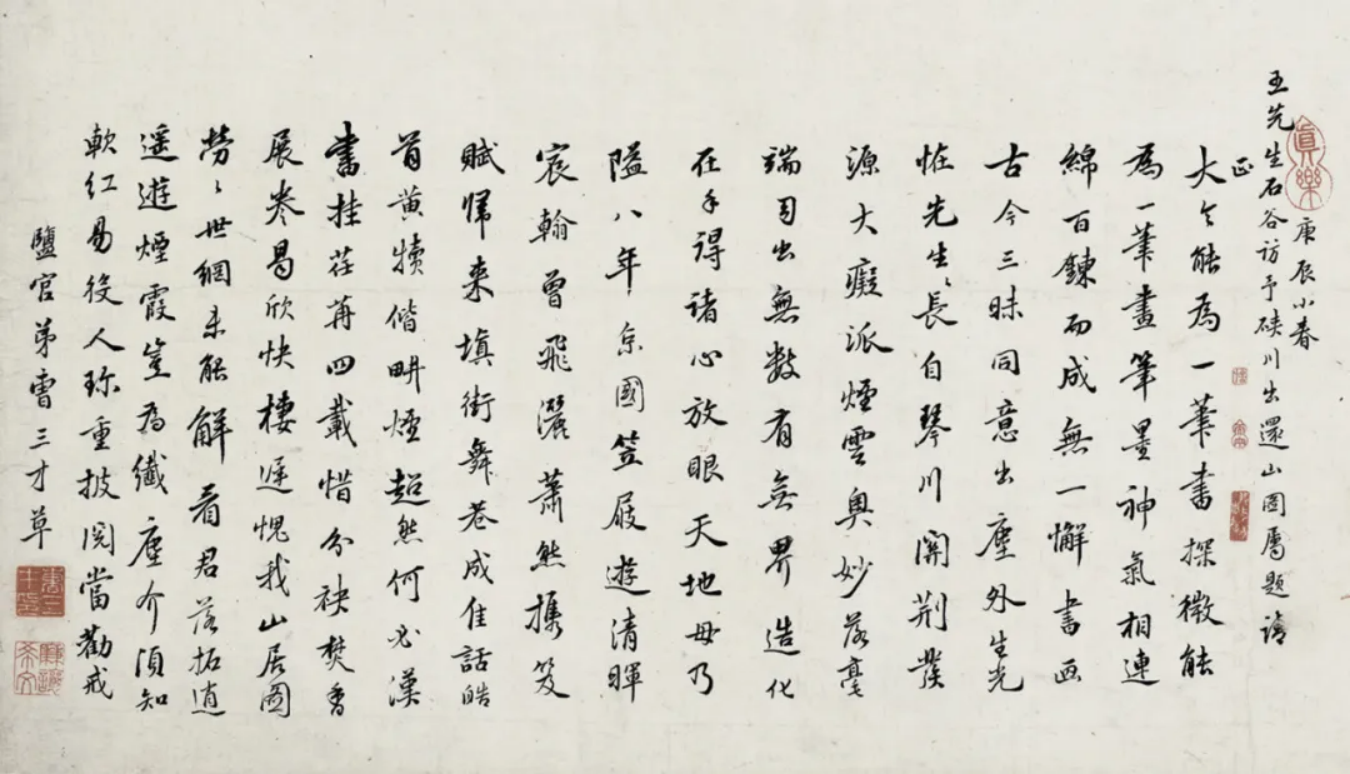 庚辰小春
王先生石谷訪予硤川出還山圖屬題請
正
大令能為一筆書探微能
為一筆畫筆墨神氣相連
綿百鍊而成無一懈書画
古今三昧同意出塵外生光
恠先生生長自琴川開荆發
源大癡派煙雲奧妙落毫
端匀出無數有無界造化
在手得諸心放眼天地毋乃
隘八年京國笠屐遊清暉
宸翰曾飛灑蕭然攜笈
賦帰来填街舞巷成佳話皓
首黄犢偕畊煙超然何必漢
書挂荏苒四載惜分袂焚香
展卷曷欣快棲遲愧我山居圖
勞勞世網未能解看君落拓逍
遥遊煙霞豈為纖塵介須知
軟红易役人珎重披図當勸戒
鹽官弟曹三才草
真樂